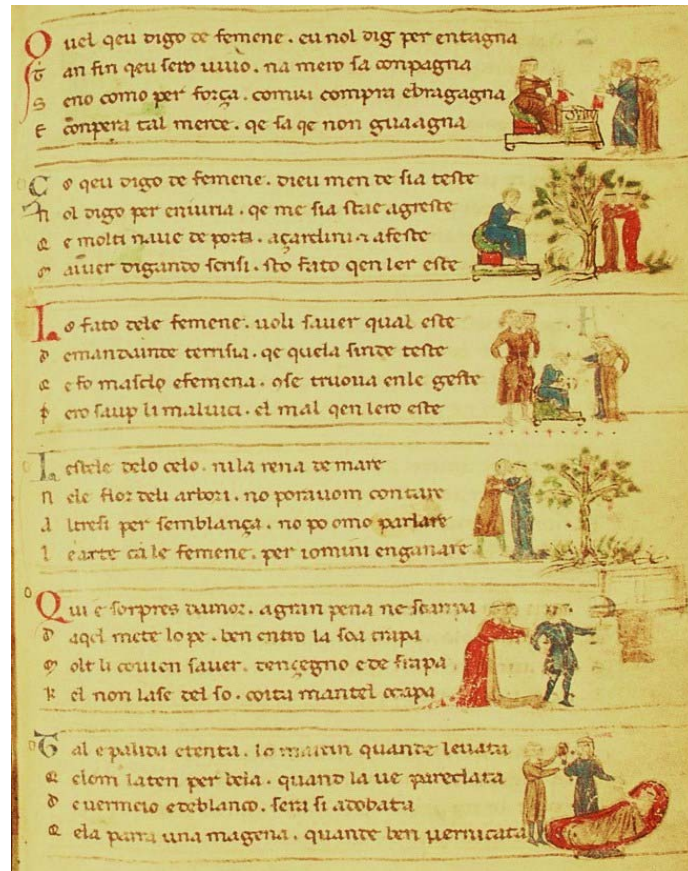 Quel qeu digo de femene. eu nol dig per entagna
Tan fin qeu sero uiuio. na mero sa conpagna
Seno como per força. comui compra ebragagna
E conpera tal merce. qe sa qe non guaagna
Ço qeu digo de femene. dieu men de sia teste
Nol digo per eniuria. qe me sia stae agreste
Qe molti naue de porti. açardini afeste
auer digando scrisi. sto fato qen ler este
Lo fato dele femene. uoli sauer qual este
demandainde terrisia. qe quela sinde teste
Qe fo masclo efemena. ose truoua enle geste
Pero saup li maluici. el mal qen lero este
Lestele delo celo. nila rena de mare
ne le flor deli arbori. no porauom contare
altresi per semblança. no po omo parlare
learte cale femene. per iomini enganare
Qui e sorpres damor. agran pena ne scanpa
daqel mete lo pe. ben entro la soa trapa
Molt li couien sauer. dençegno e de frapa
Kel non lase del so. coita mantel ocapa
Tal e palida etenta. lo maitin quande leuata
Qelom laten per bela. quand la ue pareclata
De uermeio edeblanco. sera si adobata
Qela parra una magena. quande ben uernicata